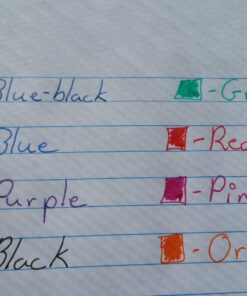 Blue-black -Gr
Blue -Red
Purple -Pin
Black -Or